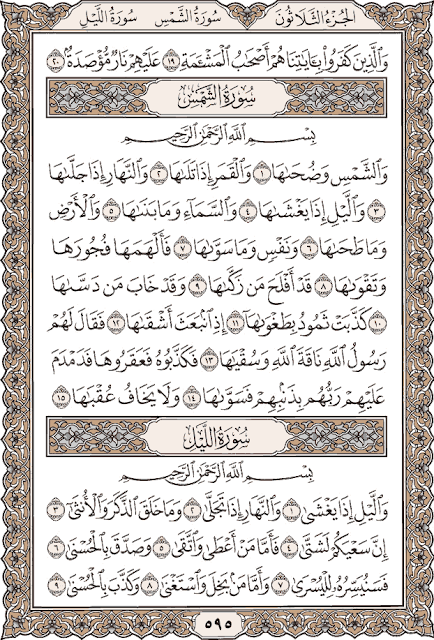 الجزء الثلاثون سورة الشمس سورة الليل
وَالَّذِينَ كَفَرُوا۟ بِـَٔايَٰتِنَا هُمْ أَصْحَٰبُ ٱلْمَشْـَٔمَةِ ١٩ عَلَيْهِمْ نَارٌ مُّؤْصَدَةٌۢ ٢٠
سُورَةُ الشَّمْسِ
بِسْمِ ٱللَّهِ ٱلرَّحْمَٰنِ ٱلرَّحِيمِ
وَٱلشَّمْسِ وَضُحَىٰهَا ١ وَٱلْقَمَرِ إِذَا تَلَىٰهَا ٢ وَٱلنَّهَارِ إِذَا جَلَّىٰهَا
٣ وَٱلَّيْلِ إِذَا يَغْشَىٰهَا ٤ وَٱلسَّمَآءِ وَمَا بَنَىٰهَا ٥ وَٱلْأَرْضِ
وَمَا طَحَىٰهَا ٦ وَنَفْسٍ وَمَا سَوَّىٰهَا ٧ فَأَلْهَمَهَا فُجُورَهَا
وَتَقْوَىٰهَا ٨ قَدْ أَفْلَحَ مَن زَكَّىٰهَا ٩ وَقَدْ خَابَ مَن دَسَّىٰهَا
١٠ كَذَّبَتْ ثَمُودُ بِطَغْوَىٰهَآ ١١ إِذِ ٱنۢبَعَثَ أَشْقَىٰهَا ١٢ فَقَالَ لَهُمْ
رَسُولُ ٱللَّهِ نَاقَةَ ٱللَّهِ وَسُقْيَٰهَا ١٣ فَكَذَّبُوهُ فَعَقَرُوهَا فَدَمْدَمَ
عَلَيْهِمْ رَبُّهُم بِذَنۢبِهِمْ فَسَوَّىٰهَا ١٤ وَلَا يَخَافُ عُقْبَٰهَا ١٥
سُورَةُ اللَّيْلِ
بِسْمِ ٱللَّهِ ٱلرَّحْمَٰنِ ٱلرَّحِيمِ
وَٱلَّيْلِ إِذَا يَغْشَىٰ ١ وَٱلنَّهَارِ إِذَا تَجَلَّىٰ ٢ وَمَا خَلَقَ ٱلذَّكَرَ وَٱلْأُنثَىٰٓ ٣
إِنَّ سَعْيَكُمْ لَشَتَّىٰ ٤ فَأَمَّا مَنْ أَعْطَىٰ وَٱتَّقَىٰ ٥ وَصَدَّقَ بِٱلْحُسْنَىٰ ٦
فَسَنُيَسِّرُهُۥ لِلْيُسْرَىٰ ٧ وَأَمَّا مَنۢ بَخِلَ وَٱسْتَغْنَىٰ ٨ وَكَذَّبَ بِٱلْحُسْنَىٰ ٩
٥٩٥